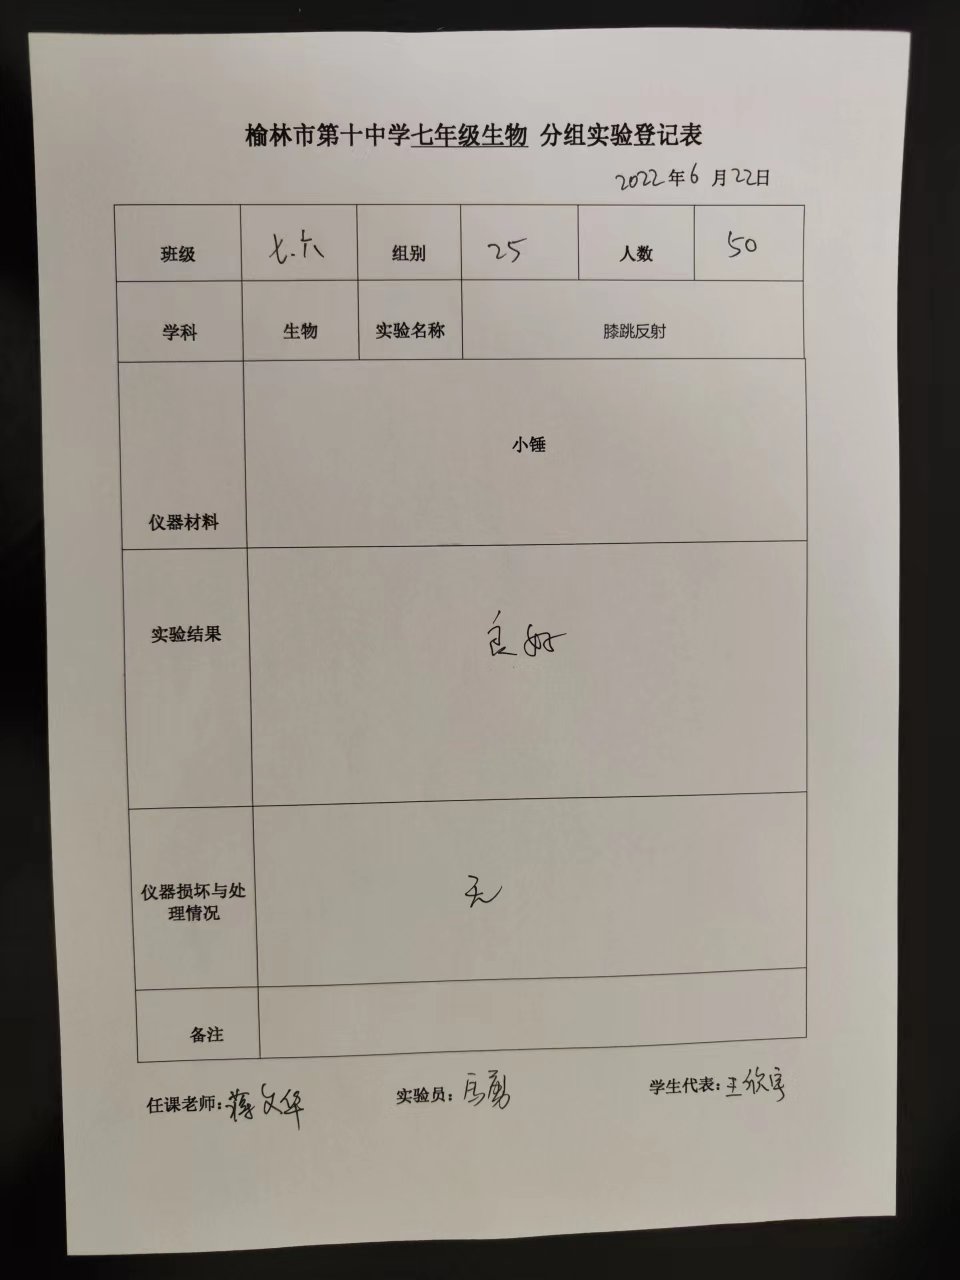 榆林市第十中学七年级生物 分组实验登记表
2022年6月22日
班级 七.六 组别 25 人数 50
学科 生物 实验名称 膝跳反射
仪器材料 小锤
实验结果 良好
仪器损坏与处
理情况 无
备注
任课老师:蒋文华 实验员: 学生代表:王欣宇